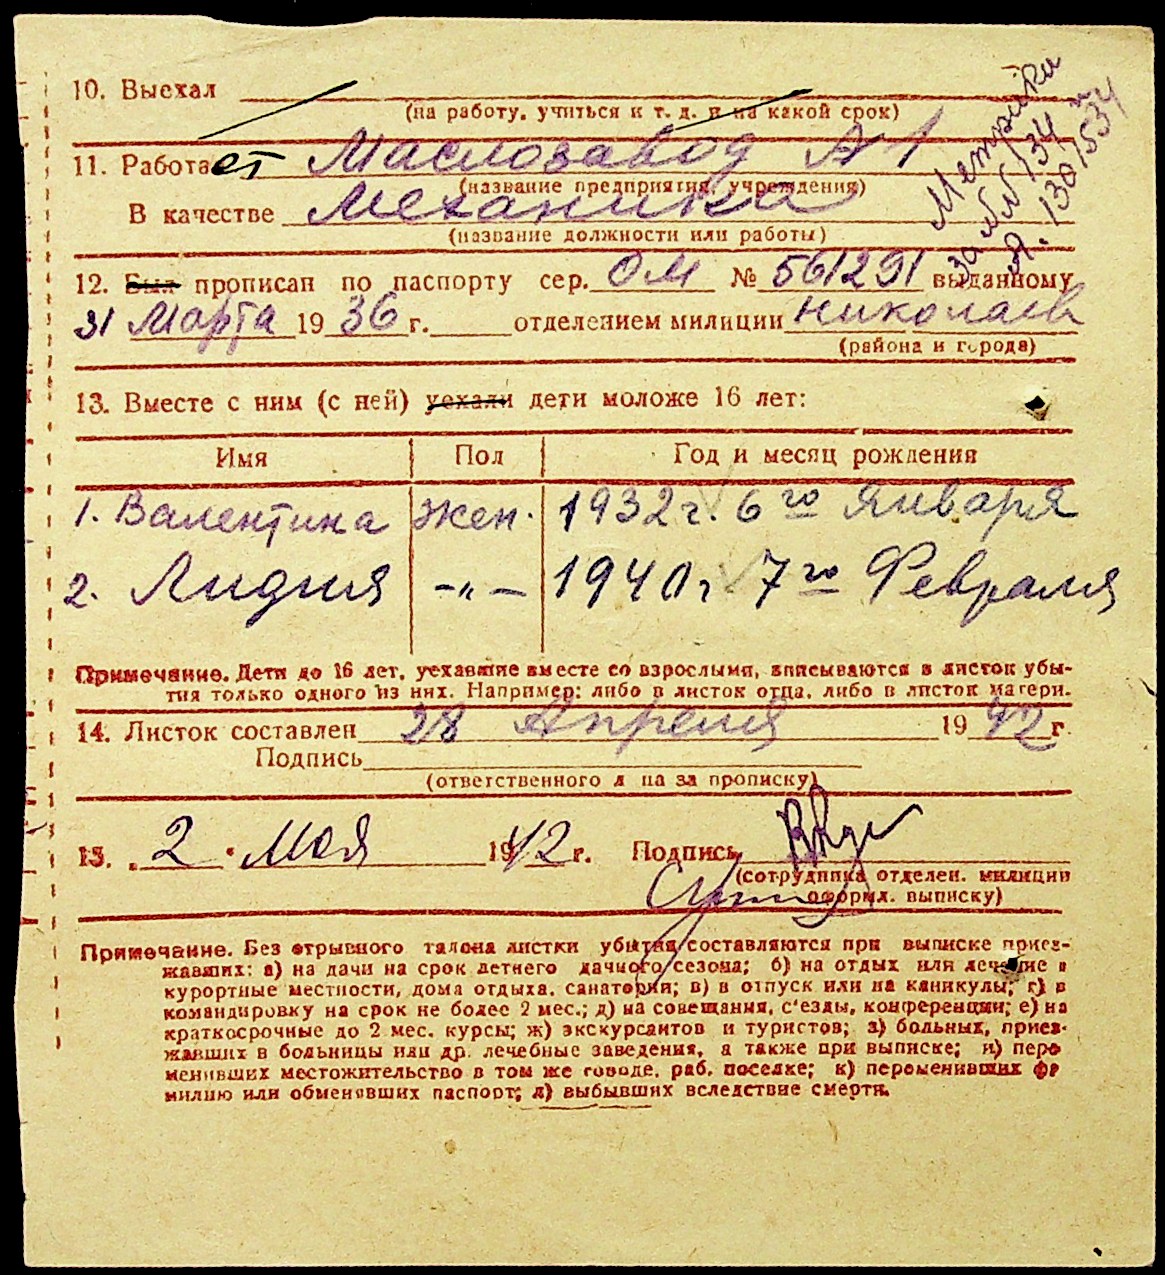 10. Выехал
(на работу, учиться и т. д. и на какой срок)
11. Работает Маслозавод №1
(название предприятия, учреждения)
В качестве Механика
(название должности или работы)
Метрика
за №№ 134 и
Я. 130/1534
12. Был прописан по паспорту сер. ОМ № 561291 выданному
31 Марта 1936 г. отделением милиции Николаев
(района и города)
13. Вместе с ним (с ней) уехали дети моложе 16 лет:
Имя Пол Год и месяц рождения
1. Валентина жен. 1932 г. 6го Января
2. Лидия -"- 1940 г 7го Февраля
Примечание. Дети до 16 лет, уехавшие вместе со взрослыми, вписываются в листок убы-
тия только одного из них. Например: либо в листок отца, либо в листок матери.
14. Листок составлен 28 Апреля 1942 г.
Подпись
(ответственного л ца за прописку)
15. 2 " Мая 1942 г. Подпись
(сотрудника отделен. милиции
оформл. выписку)
Примечание. Без отрывного талона листки убытия составляются при выписке приез-
жавших: а) на дачи на срок летнего дачного сезона; б) на отдых или лечение в
курортные местности, дома отдыха, санатории; в) в отпуск или на каникулы; г) в
командировку на срок не более 2 мес.; д) на совещания, с'езды, конференции; е) на
краткосрочные до 2 мес. курсы; ж) экскурсантов и туристов; з) больных, приез-
жавших в больницы или др. лечебные заведения, а также при выписке; и) пере
менивших местожительство в том же городе, раб. поселке; к) переменивших фа
милию или обменявших паспорт; л) выбывших вследствие смерти.